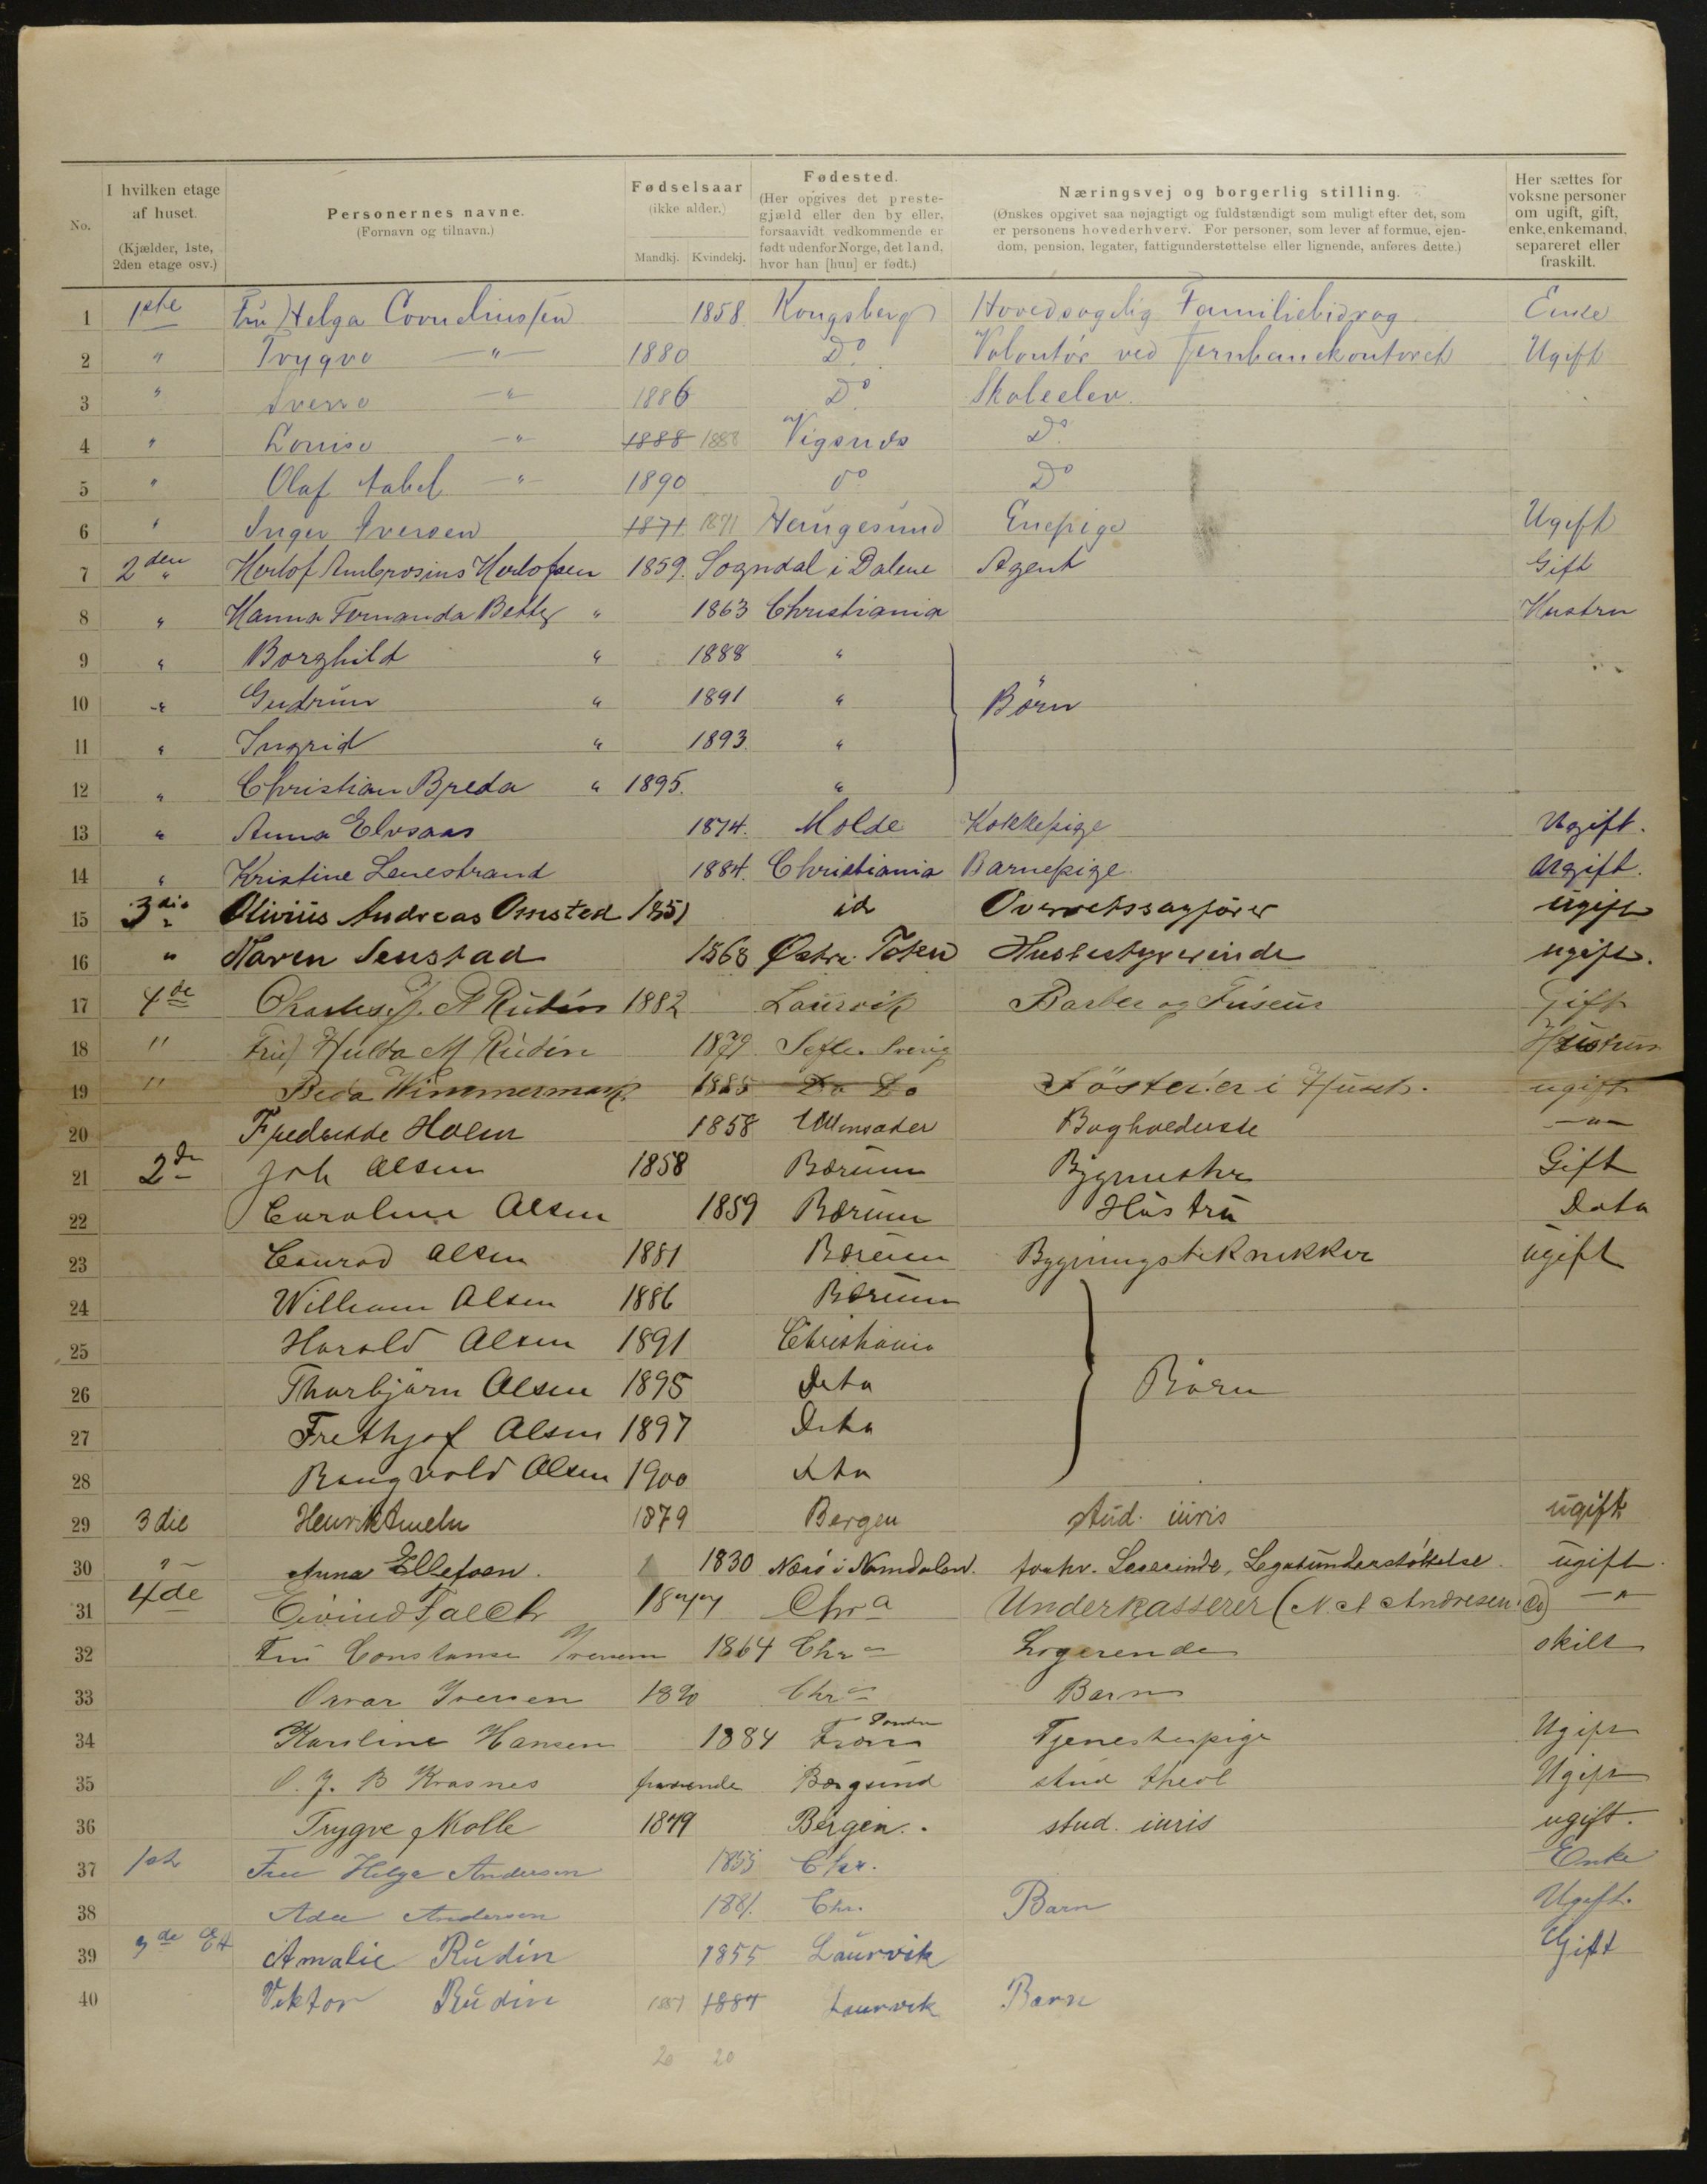 No.
I hvilken etage af huset. (Kjælder, 1ste, 2den etage osv.)
Personernes navne. (Fornavn og tilnavn.)
Fødselsaar (ikke alder.) Mandkj. Kvindekj.
Fødested. (Her opgives det prestegjæld eller den by eller, forsaavidt vedkommende er født udenfor Norge, det land, hvor han [hun] er født.)
Næringsvej og borgerlig stilling. (Ønskes opgivet saa nøjagtigt og fuldstændigt som muligt efter det, som er personens hovederhverv. For personer, som lever af formue, ejendom, pension, legater, fattigunderstøttelse eller lignende, anføres dette.)
Her sættes for voksne personer om ugift, gift, enke, enkemand, separeret eller fraskilt.
1 1ste Fru Helga Corneliussen 1858 Kongsberg Hovedsagelig Familiebidrag Enke
2 " Trygve —"— 1880 Do Volontør ved Jernbanekontoret Ugift
3 " Sverre —"— 1886 Do Skoleelev.
4 " Louise —"— 1888 1888 Vigsnes Do
5 " Olaf Aabel —"— 1890 do Do
6 " Inger Iversen 1871 1871 Haugesund Enepige Ugift
7 2den " Herlof Ambrosius Herlofsen 1859. Sogndal i Dalene Agent Gift
8 " Hanna Fernanda Betty " 1863 Christiania Hustru
9 " Borghild " 1888 "
10 " Gudrun " 1891 " Børn
11 " Ingrid " 1893. "
12 " Christian Breda " 1895. "
13 " Anna Elvsaas 1874. Molde Kokkepige Ugift.
14 " Kristine Lenestrand 1884. Christiania Barnepige. Ugift.
15 3die " Olivius Andreas Omsted 1851 id Overretssagfører ugift
16 " Maren Senstad 1868 Østre Toten Husbestyrerinde ugift.
17 4de Charles A Rudin 1882 Laurvik Barber og Friseur Gift
18 " Fru Hulda M Rudin 1879 Gefle Sverig Hustru
19 " Beda Wimmermark 1885 Do Do Søster er i Huset. ugift
20 Fredrikke Holm 1858 Ullensaker Bogholderske —"—
21 2de Joh Olsen 1858 Bærum Bygmester Gift
22 Caroline Olsen 1859 Bærum Hustru Dato
23 Conrad Olsen 1881 Bærum Bygningstekniker ugift
24 William Olsen 1886 Bærum
25 Harald Olsen 1891 Christiania
26 Thorbjørn Olsen 1895 Dito Børn
27 Frethjof Olsen 1897 Dito
28 Rangvald Olsen 1900 Dito
29 3die Henrik Ameln 1879 Bergen stud. iuris ugift
30 "— Anna Ellefsen. 1830 Næsø i Namdalen. forhv. Lærerinde, Legatunderstøttelse. ugift.
31 4de Eivind Falch 1877 Chra Underkasserer (N. A Andresen. Co) —"
32 Fru Constance Iversen 1864 Chra Logerende skilt
33 Osvar Iversen 1890 Chra Barn
34 Karoline Hansen 1884 Søndre Fron Tjenestepige Ugift
35 O. J. B Krasnes Borgsund stud theol Ugift
36 Trygve Molle 1879 Bergen. stud. iuris ugift.
37 1ste Fru Helga Andersen 1855 Chr. Enke
38 Ada Andersen 1881. Chr. Barn Ugift.
39 3de Et Amalie Rudin 1855 Laurvik Gift
40 Viktor Rudin 1887 1887 Laurvik Barn
20 20